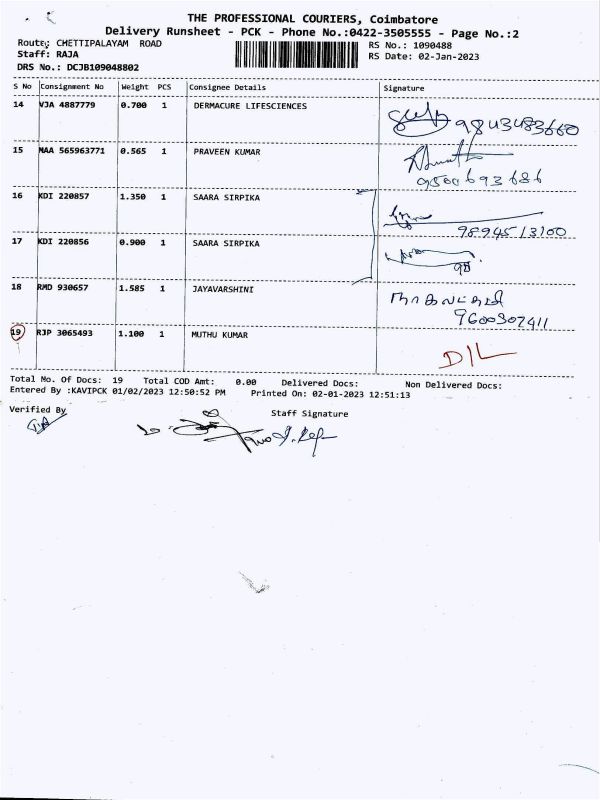 THE PROFESSIONAL COURIERS, Coimbatore
Delivery Runsheet - PCK - Phone No.:0422-3505555 - Page No.:2
Route: CHETTIPALAYAM ROAD RS No.: 1090488
Staff: RAJA RS Date: 02-Jan-2023
DRS No.: DCJB109048802
S No Consignment No Weight PCS Consignee Details Signature
14 VJA 4887779 0.700 1 DERMACURE LIFESCIENCES
9843483660
15 MAA 565963771 0.565 1 PRAVEEN KUMAR
9500693686
16 KDI 220857 1.350 1 SAARA SIRPIKA
9894513100
17 KDI 220856 0.900 1 SAARA SIRPIKA
98
18 RMD 930657 1.585 1 JAYAVARSHINI
9600307411
19 RJP 3065493 1.100 1 MUTHU KUMAR
D/L
Total No. Of Docs: 19 Total COD Amt: 0.00 Delivered Docs: Non Delivered Docs:
Entered By :KAVIPCK 01/02/2023 12:50:52 PM Printed On: 02-01-2023 12:51:13
Verified By Staff Signature